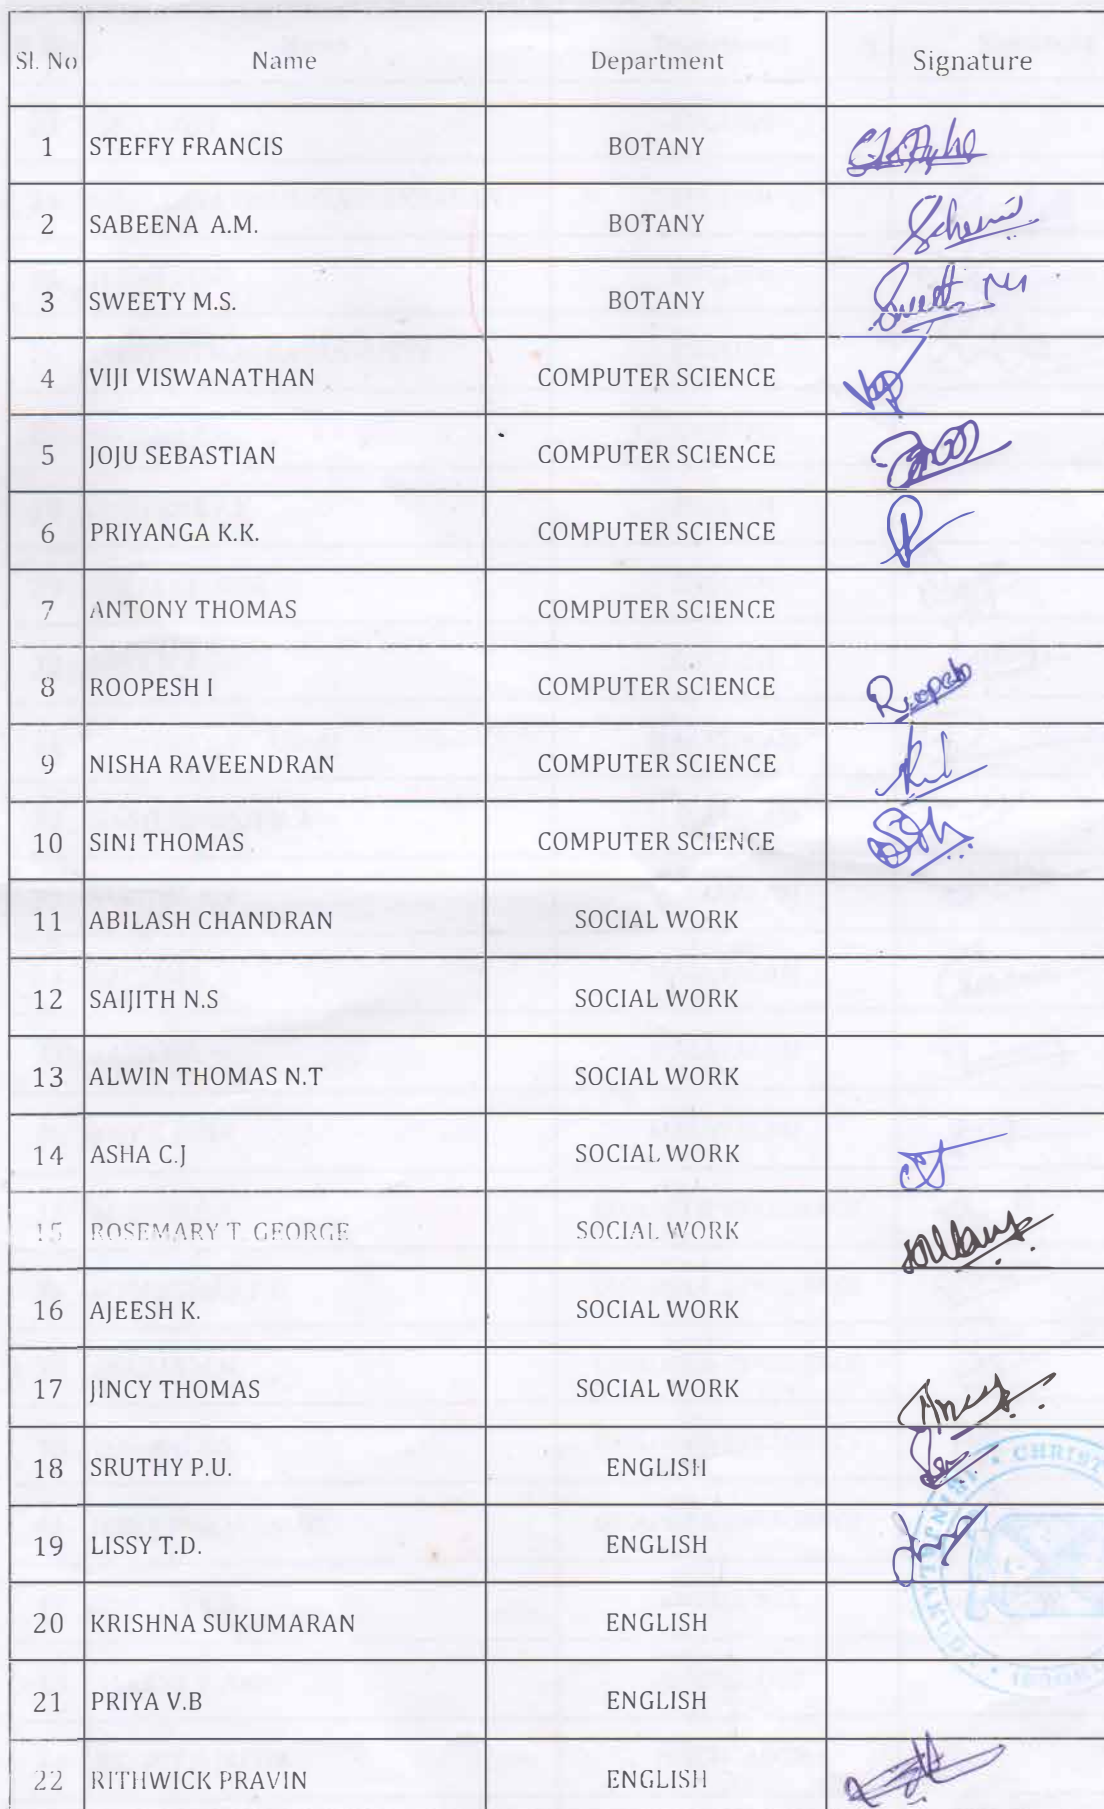 Sl. No Name Department Signature
1 STEFFY FRANCIS BOTANY
2 SABEENA A.M. BOTANY
3 SWEETY M.S. BOTANY
4 VIJI VISWANATHAN COMPUTER SCIENCE
5 JOJU SEBASTIAN COMPUTER SCIENCE
6 PRIYANGA K.K. COMPUTER SCIENCE
7 ANTONY THOMAS COMPUTER SCIENCE
8 ROOPESH I COMPUTER SCIENCE
9 NISHA RAVEENDRAN COMPUTER SCIENCE
10 SINI THOMAS COMPUTER SCIENCE
11 ABILASH CHANDRAN SOCIAL WORK
12 SAIJITH N.S SOCIAL WORK
13 ALWIN THOMAS N.T SOCIAL WORK
14 ASHA C.J SOCIAL WORK
15 ROSEMARY T. GEORGE SOCIAL WORK
16 AJEESH K. SOCIAL WORK
17 JINCY THOMAS SOCIAL WORK
18 SRUTHY P.U. ENGLISH
19 LISSY T.D. ENGLISH
20 KRISHNA SUKUMARAN ENGLISH
21 PRIYA V.B ENGLISH
22 RITHWICK PRAVIN ENGLISH